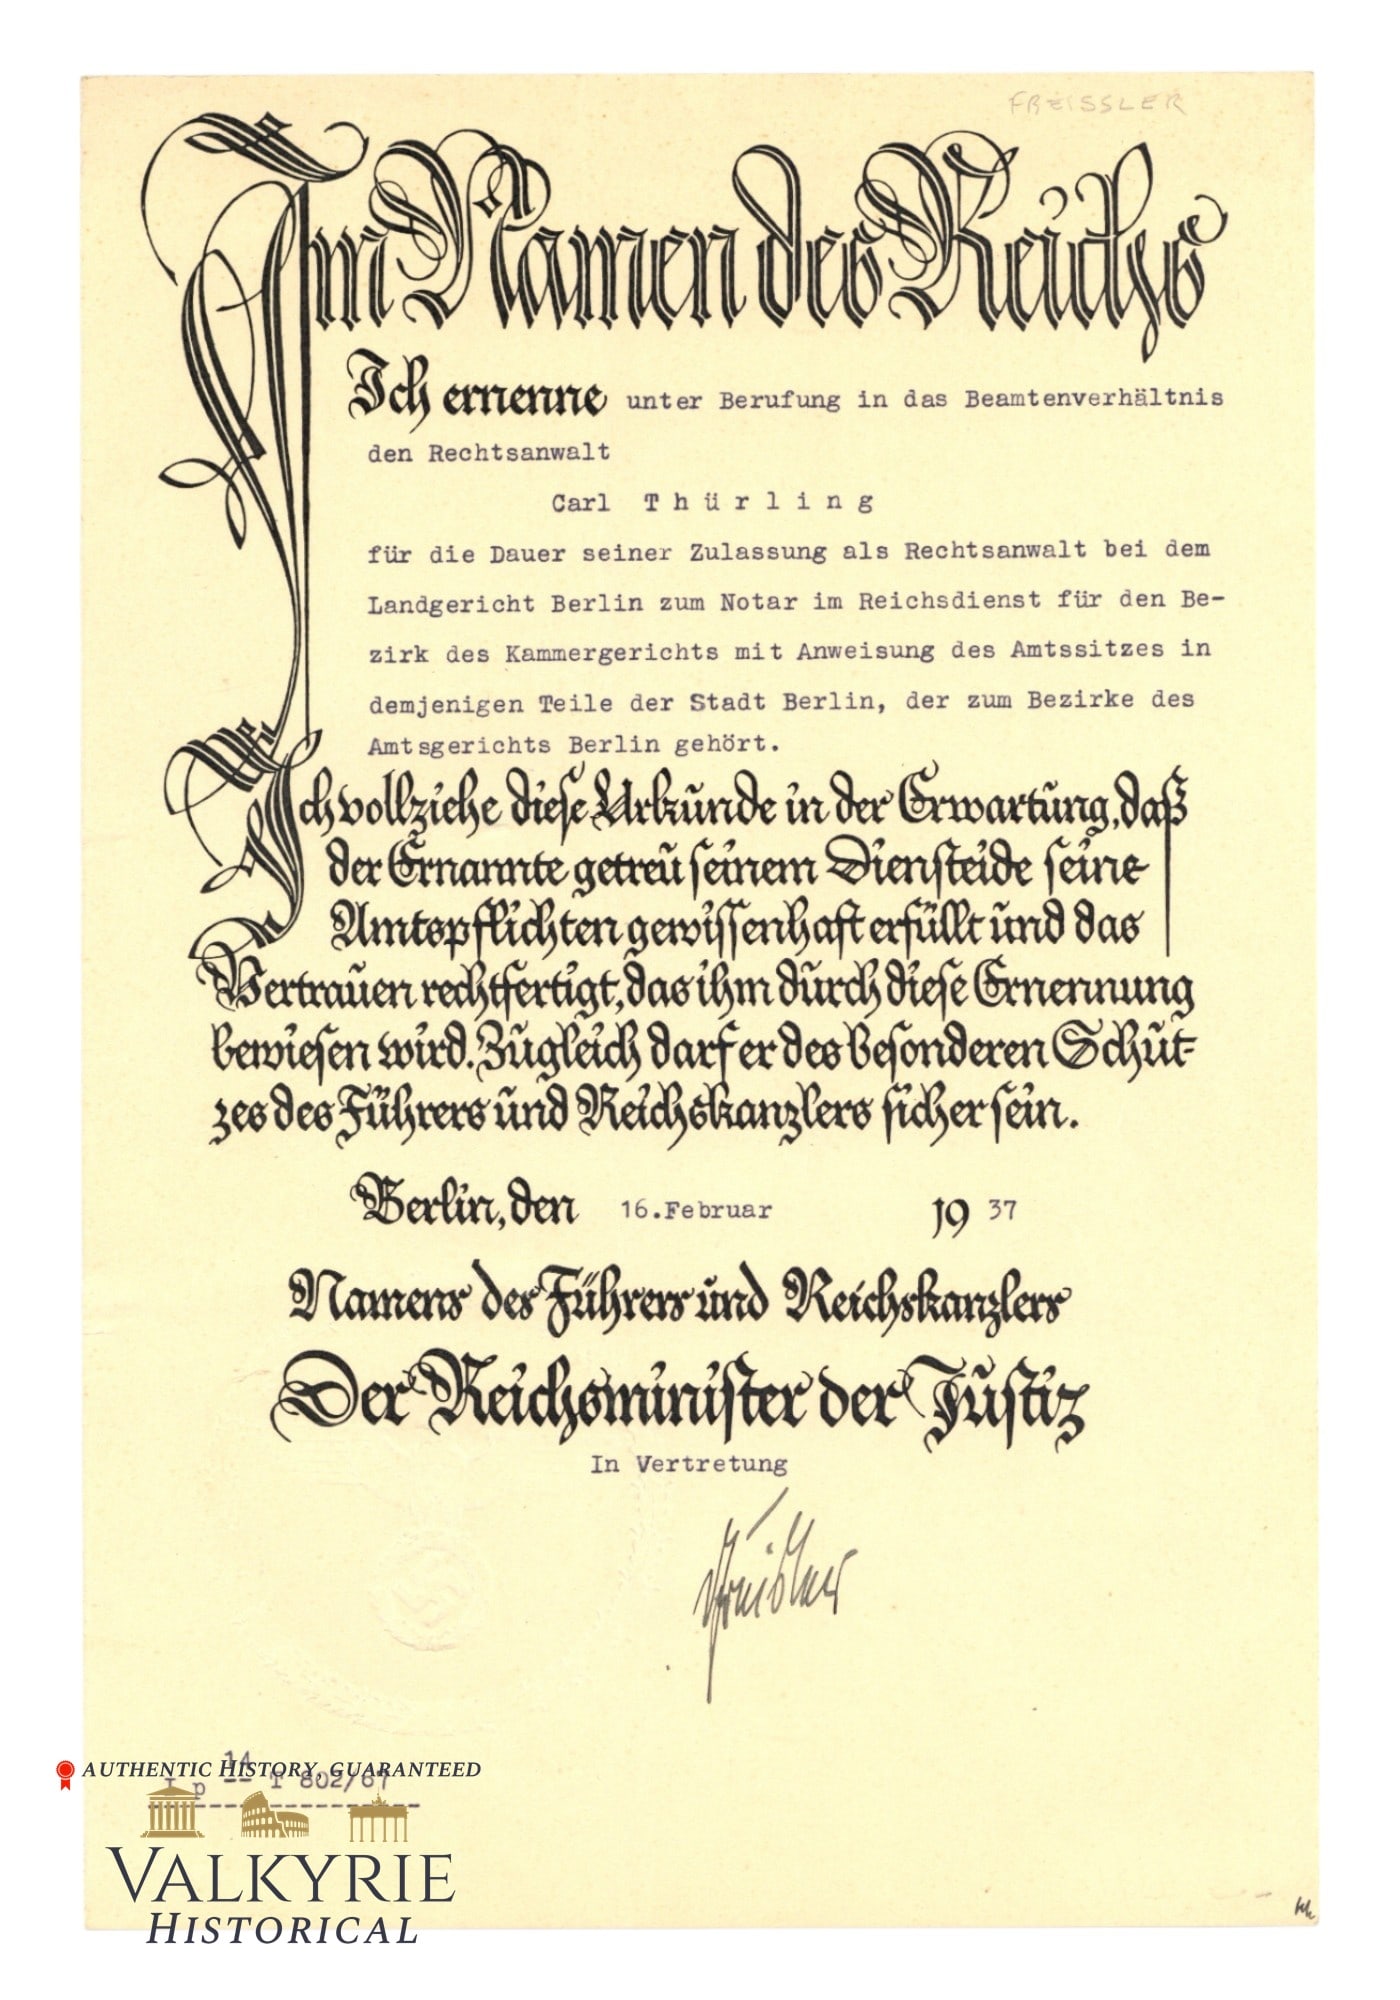 FREISSLER
Im Namen des Reichs
Ich ernenne unter Berufung in das Beamtenverhältnis
den Rechtsanwalt
Carl Thürling
für die Dauer seiner Zulassung als Rechtsanwalt bei dem
Landgericht Berlin zum Notar im Reichsdienst für den Be-
zirk des Kammergerichts mit Anweisung des Amtssitzes in
demjenigen Teile der Stadt Berlin, der zum Bezirke des
Amtsgerichts Berlin gehört.
Ich vollziehe diese Urkunde in der Erwartung, daß
der Ernannte getreu seinem Diensteide seine
Amtspflichten gewissenhaft erfüllt und das
Vertrauen rechtfertigt, das ihm durch diese Ernennung
bewiesen wird. Zugleich darf er des besonderen Schut-
zes des Führers und Reichskanzlers sicher sein.
Berlin, den 16.Februar 1937
Namens des Führers und Reichskanzlers
Der Reichsminister der Justiz
In Vertretung
Freisler
14
p -- T 802/67
AUTHENTIC HISTORY, GUARANTEED
VALKYRIE
HISTORICAL